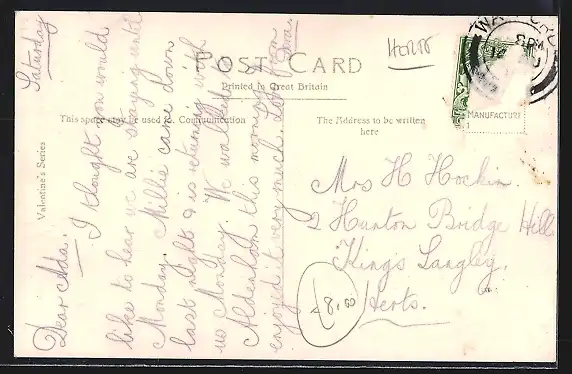 POST CARD
Printed in Great Britain
This space may be used for Communication
The Address to be written
here
Valentine's Series
MANUFACTURE
Saturday
Dear Ada.
I thought you would
like to hear we are staying until
Monday. Millie came down
last night & is returning with
us Monday. We walked to
Aldenham this morning &
enjoyed it very much. Love from
Mrs H Hockin.
2 Hunton Bridge Hill
King's Langley.
Herts.